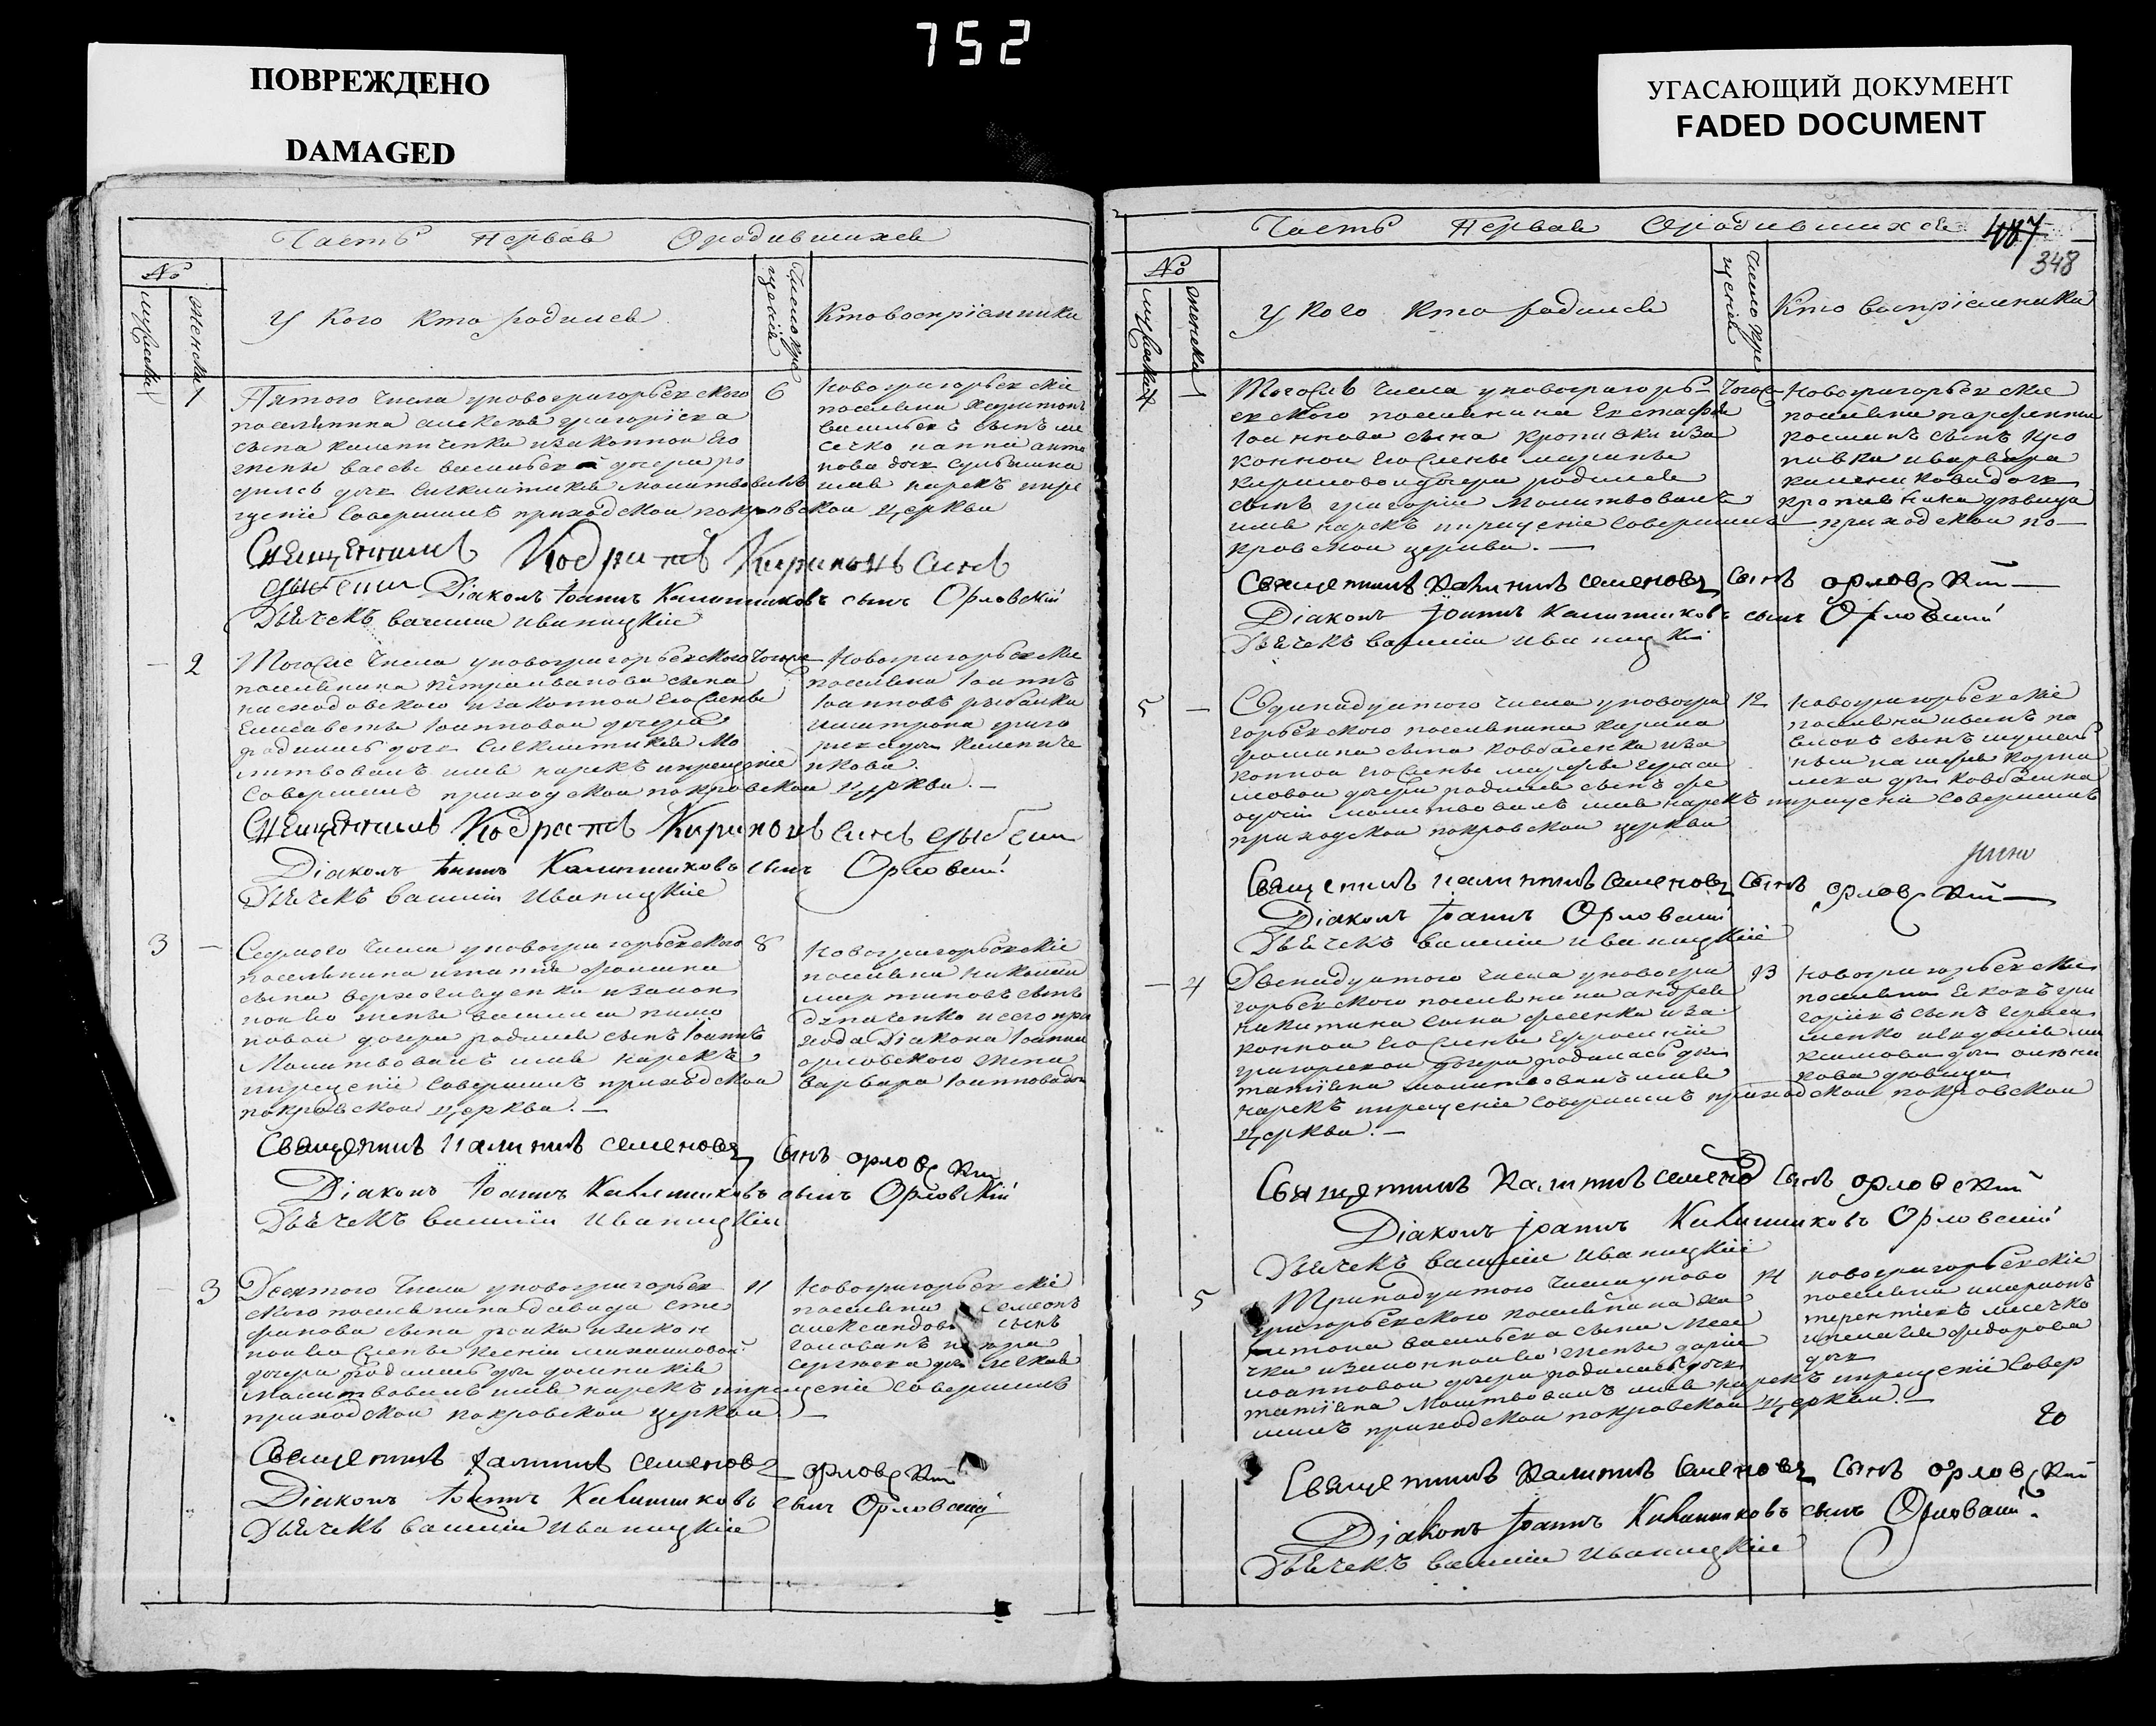 752
ПОВРЕЖДЕНО
DAMAGED
УГАСАЮЩИЙ ДОКУМЕНТ
FADED DOCUMENT
Часть Первая Ородившихся
№
мужеска
женска
У кого кто родился
Число крещенія
Кто воспріемники
1
Пятого числа уновогригорьевского
поселянина алексея григоріева
сына
жены василиевой дочери ро
дилась дочь Сиклитикія молитвовалъ
имя нарекъ икре
щеніе Совершилъ приходской покровской церкви
6
Новогригорьевскіе
поселяне Харитонъ
васильевъ сынъ ме
сечко ианна анто
нова дочь
Священникъ Кодратъ Кириловъ Синъ
Діаконъ Іоаннъ Калинниковъ сынъ Орловскій
Дьячекъ василій Иваницкій
2
Тогоже числа уновогригорьевского
поселянина Петра иванова сына
изаконной Егожены
Елисаветы Іоанновой дочери
родилась дочь Сиклитикія Мо
литвовалъ имя нарекъ икрещеніе
Совершилъ приходской покровской церкви.
тогоже
Новогригорьевскіе
поселяне Іоаннъ
Іоанновъ рыбалка
иматрона григо
риева дочь Каленичен
кова.
Священникъ Кодратъ Кириловъ Синъ
Діаконъ Іоаннъ Калинниковъ сынъ Орловскій
Дьячекъ василій Иваницкій
3
Седмого числа уновогригорьевского
поселянина игнатія фомина
сына изакон
ной Его жены василисы пимо
новой дочери родился сынъ Іоаннъ
Молитвовалъ имя нарекъ
икрещеніе Совершилъ приходской
покровской церкви.
8
Новогригорьевскіе
поселяне николай
мартиновъ сынъ
исего при
хода Діакона Іоанна
орловского жена
варвара Іоаннова дочь
Священникъ Калинникъ семеновъ Сынъ орловскій
Діаконъ Іоаннъ Калинниковъ сынъ Орловскій
Дьячекъ василій Иваницкій
3
Десятого числа уновогригорьев
ского поселянина давида сте
фанова сына изакон
ной Его жены Ксеніи михайловой
дочери родилась дочь домникія
молитвовалъ имя нарекъ икрещеніе совершилъ
приходской покровской церкви
11
Новогригорьевскіе
поселяне Семеонъ
александровъ сынъ
Священникъ Калинникъ семеновъ орловскій
Діаконъ Іоаннъ Калинниковъ сынъ Орловскій
Дьячекъ василій Иваницкій
Часть Первая Ородившихся
487
348
№
мужеска
женска
У кого кто родился
Число крещенія
Кто воспріемники
4
Тогоже числа уновогригорь
евского поселянина Евстафія
Іоаннова сына кропивки иза
конной Егожены марины
кириловой дочери родился
сынъ григорій Молитвовалъ
имя нарекъ икрещеніе Совершилъ приходской по
кровской церкви.
тогоже
Новогригорьевскіе
поселяне парфеній
косминъ сынъ кро
пивка иварвара
дочь
кропивника дѣвица
Священникъ Калинникъ семеновъ Сынъ орловскій
Діаконъ Іоаннъ Калинниковъ сынъ Орловскій
Дьячекъ василій Иваницкій
5
Одинадцатого числа уновогри
горьевского поселянина Кирила
фомина сына Ковбасенка иза
конной Егожены марфы Гераси
мовой дочери родился сынъ фе
одосій молитвовалъ имя нарекъ икрещеніе Совершилъ
приходской покровской церкви
12
Новогригорьевскіе
поселяне иванъ па
вловъ сынъ
Священникъ Калинникъ Семеновъ Сынъ орловскій
Діаконъ Іоаннъ Орловскій
Дьячекъ василій Иваницкій
4
Двенадцатого числа уновогри
горьевского поселянина андрея
никитина сына фесенка иза
конной Егожены Ефросиніи
григориевой дочери родилась дочь
татіяна молитвовалъ имя
нарекъ икрещеніе совершилъ приходской покровской
церкви.
13
Новогригорьевскіе
поселяне Яковъ гри
горіевъ сынъ Гераси
менко иевдокія ма
ксимова дочь
дѣвица
Священникъ Калинникъ семеновъ Сынъ орловскій
Діаконъ Іоаннъ Калинниковъ Орловскій
Дьячекъ василій Иваницкій
5
Тринадцатого числа уново
григорьевского поселянина ха
ритона васильева сына месе
чки изаконной Его жены даріи
иоанновой дочери родилась дочь
татіяна Молитвовалъ имя нарекъ икрещеніе Совер
шилъ приходской покровской церкви.
14
Новогригорьевскіе
поселяне иларионъ
терентіевъ месечко
ипелагія федорова
дочь
20
Священникъ Калинникъ Семеновъ Сынъ орловскій
Діаконъ Іоаннъ Калинниковъ сынъ Орловскій.
Дьячекъ василій Иваницкій